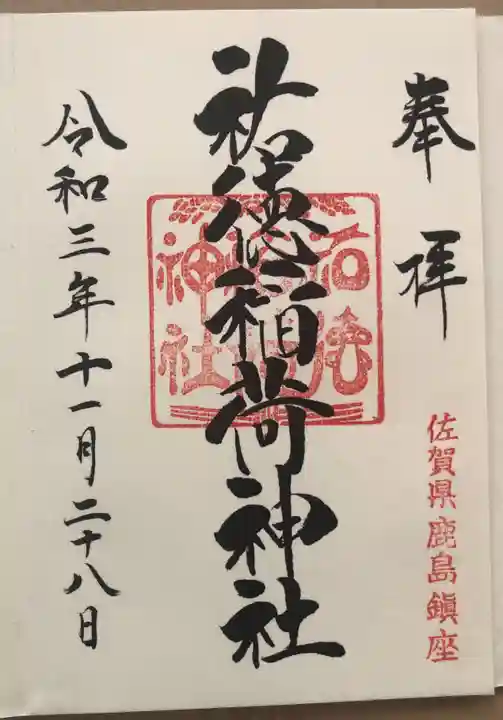 奉拝
佐賀県鹿島鎮座
祐徳稲荷神社
令和三年十一月二十八日